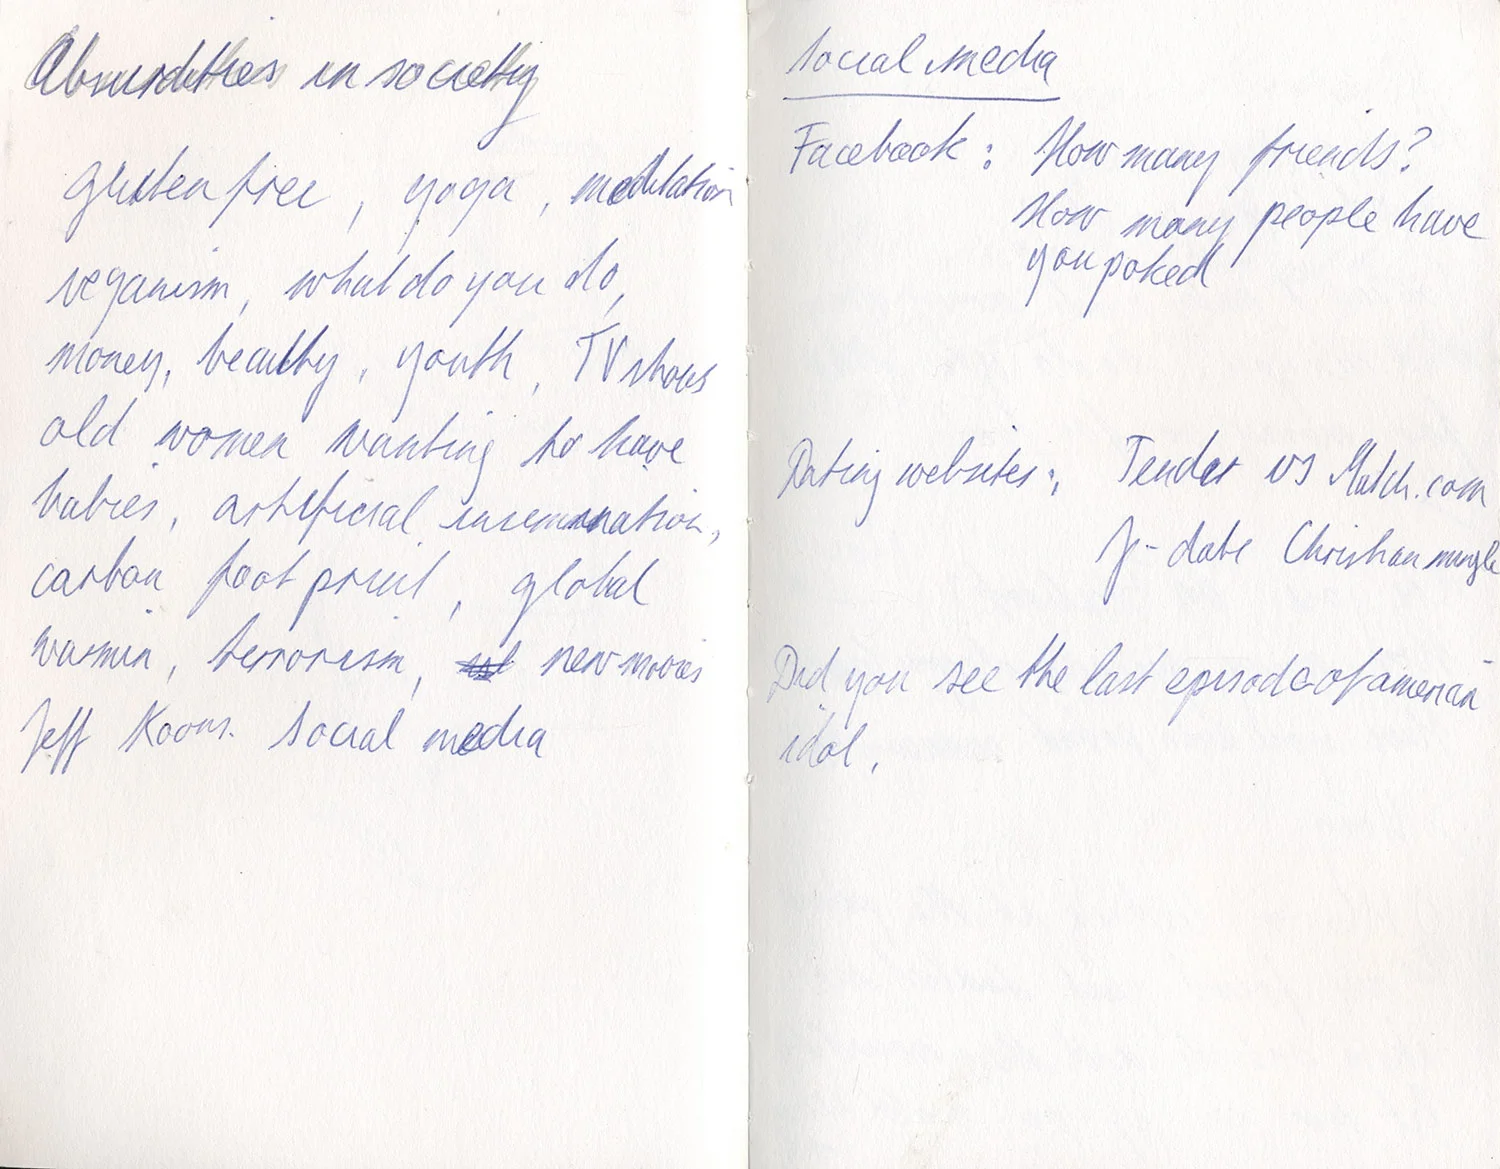 Absurdities in society
gluten free, yoga, meditation
veganism, what do you do,
money, beauty, youth, TV shows
old women wanting to have
babies, artificial insemination,
carbon foot print, global
warmin, terrorism, new movies
Jeff Koons. Social media
Social media
Facebook: How many friends?
How many people have
you poked
Dating websites: Tender vs Match.com
J-date Christian mingle
Did you see the last episode of american
idol.